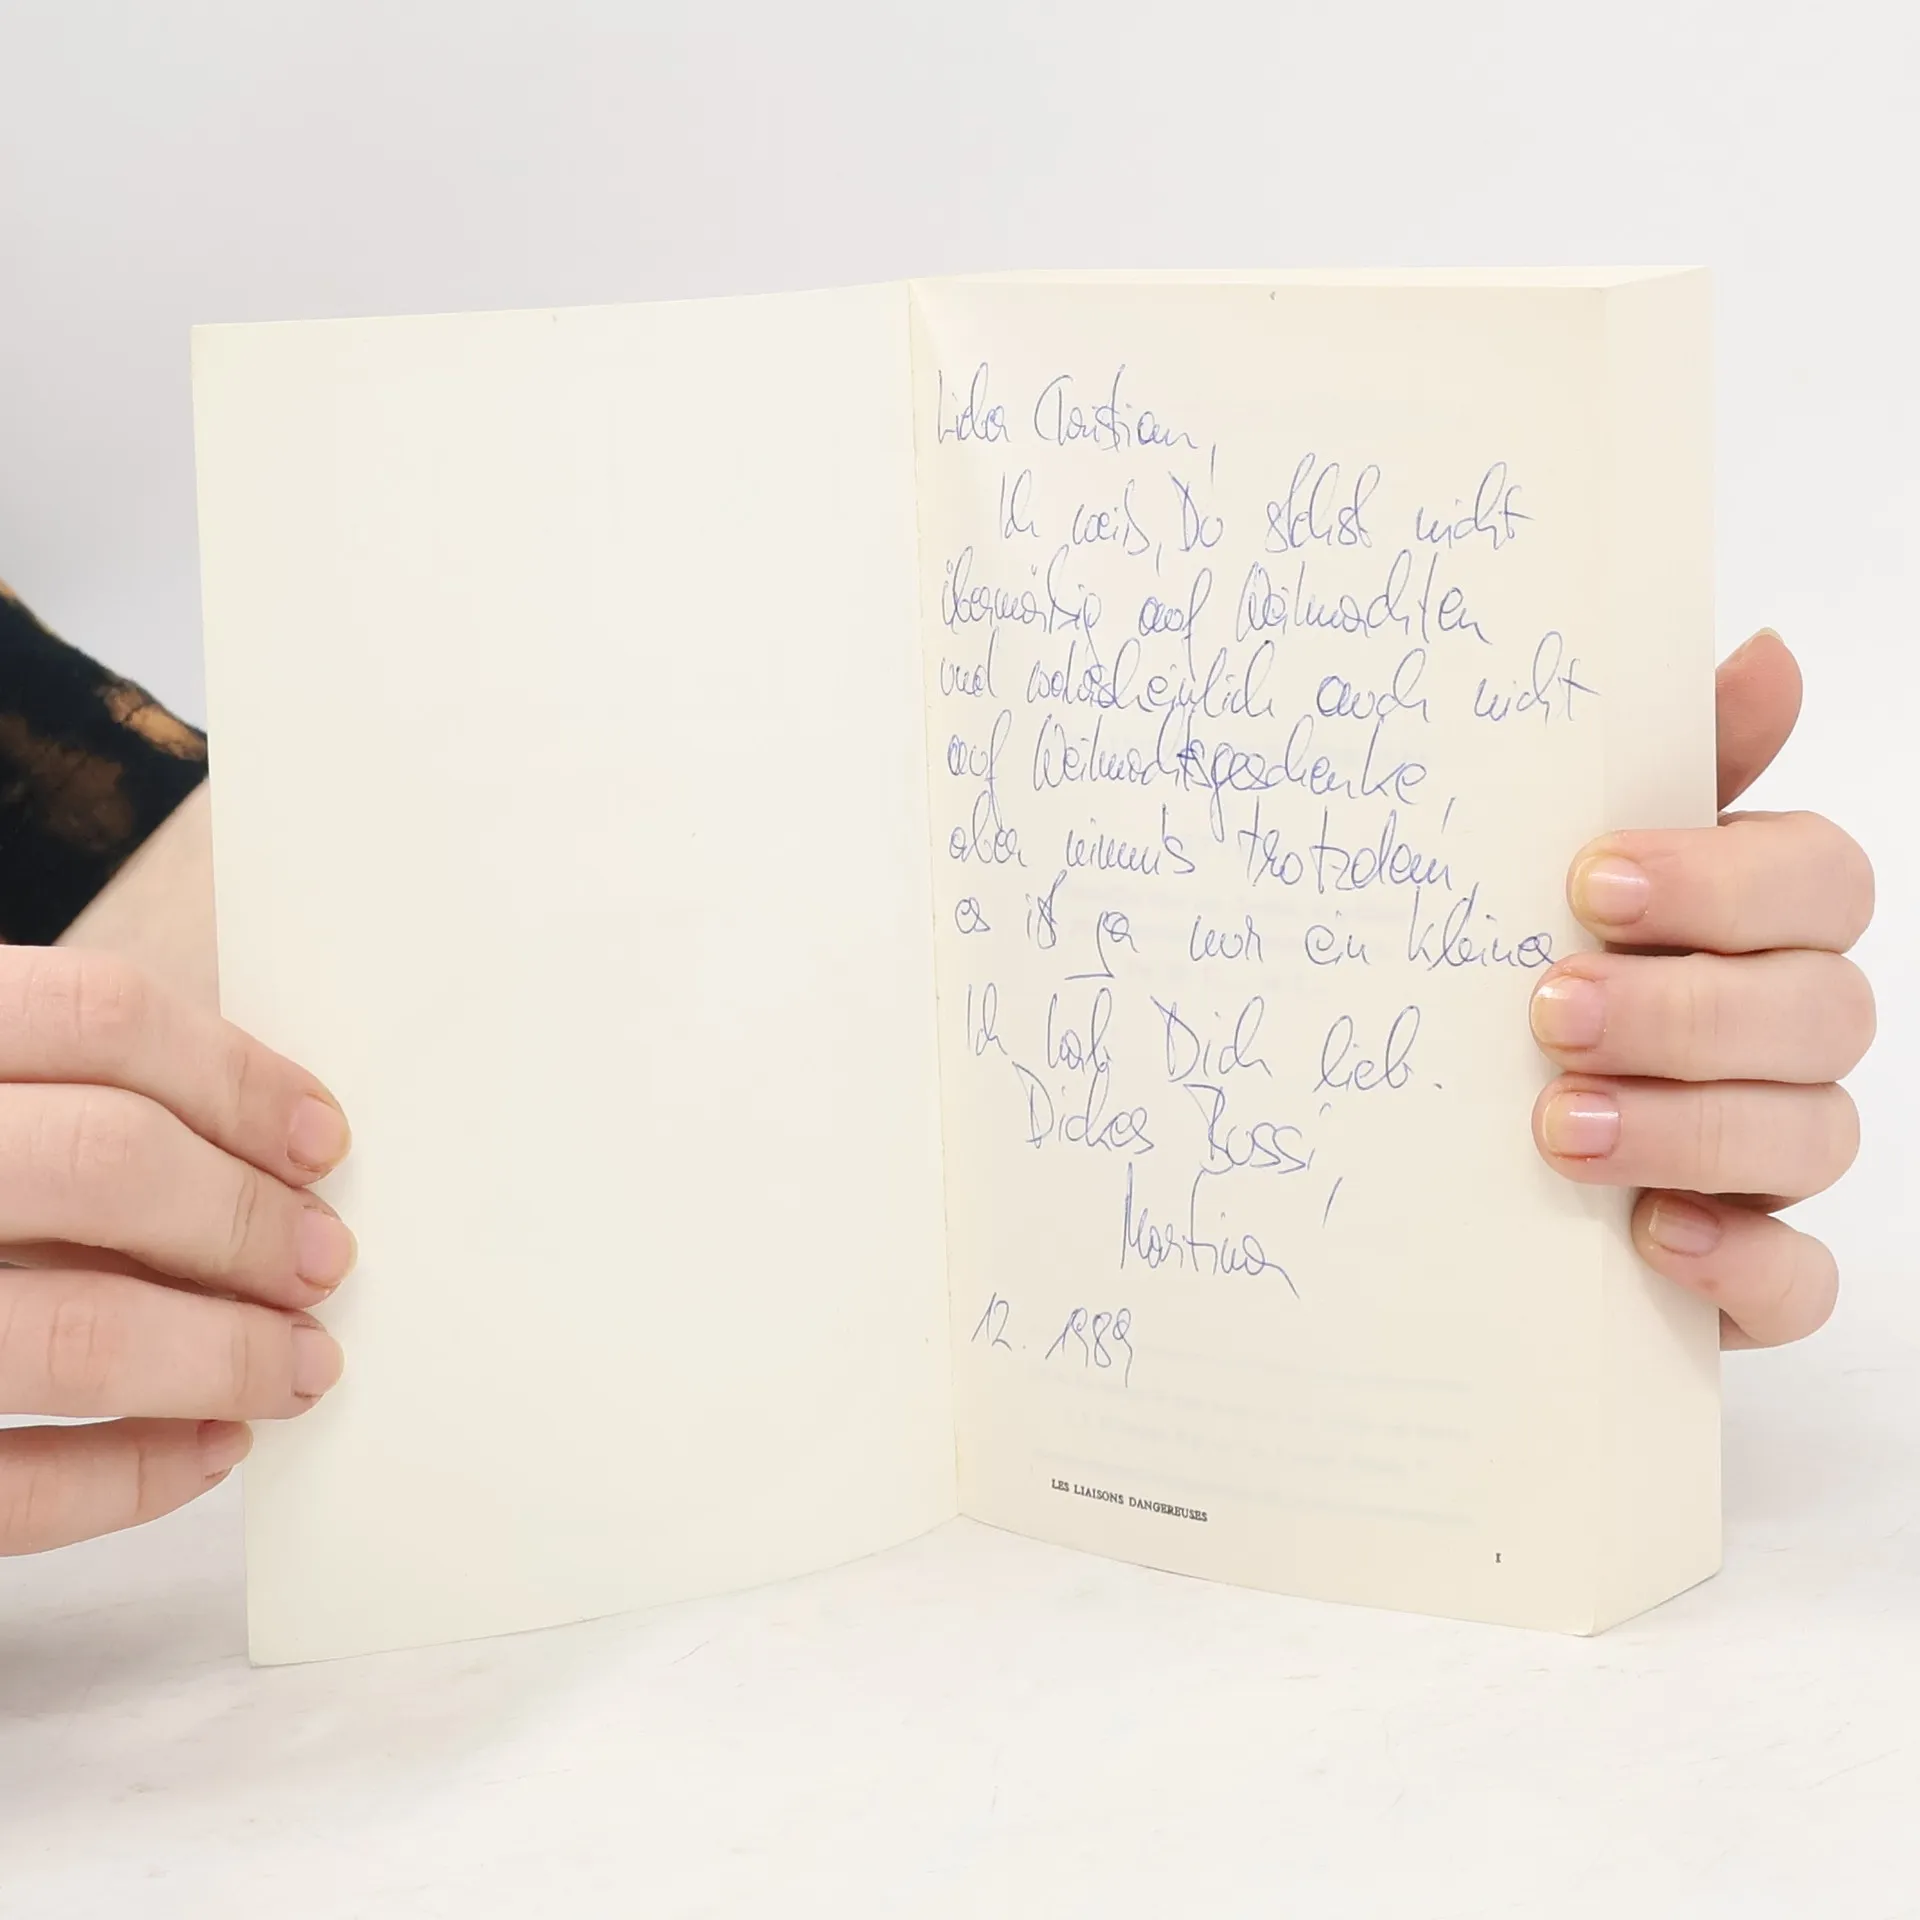 Lieber Christian,
Ich weiß, Du stehst nicht
übermäßig auf Weihnachten
und wahrscheinlich auch nicht
auf Weihnachtsgeschenke,
aber nimm's trotzdem,
es ist ja nur ein kleines
Ich hab Dich lieb.
Dickes Bussi,
Martina
12. 1989
LES LIAISONS DANGEREUSES
I